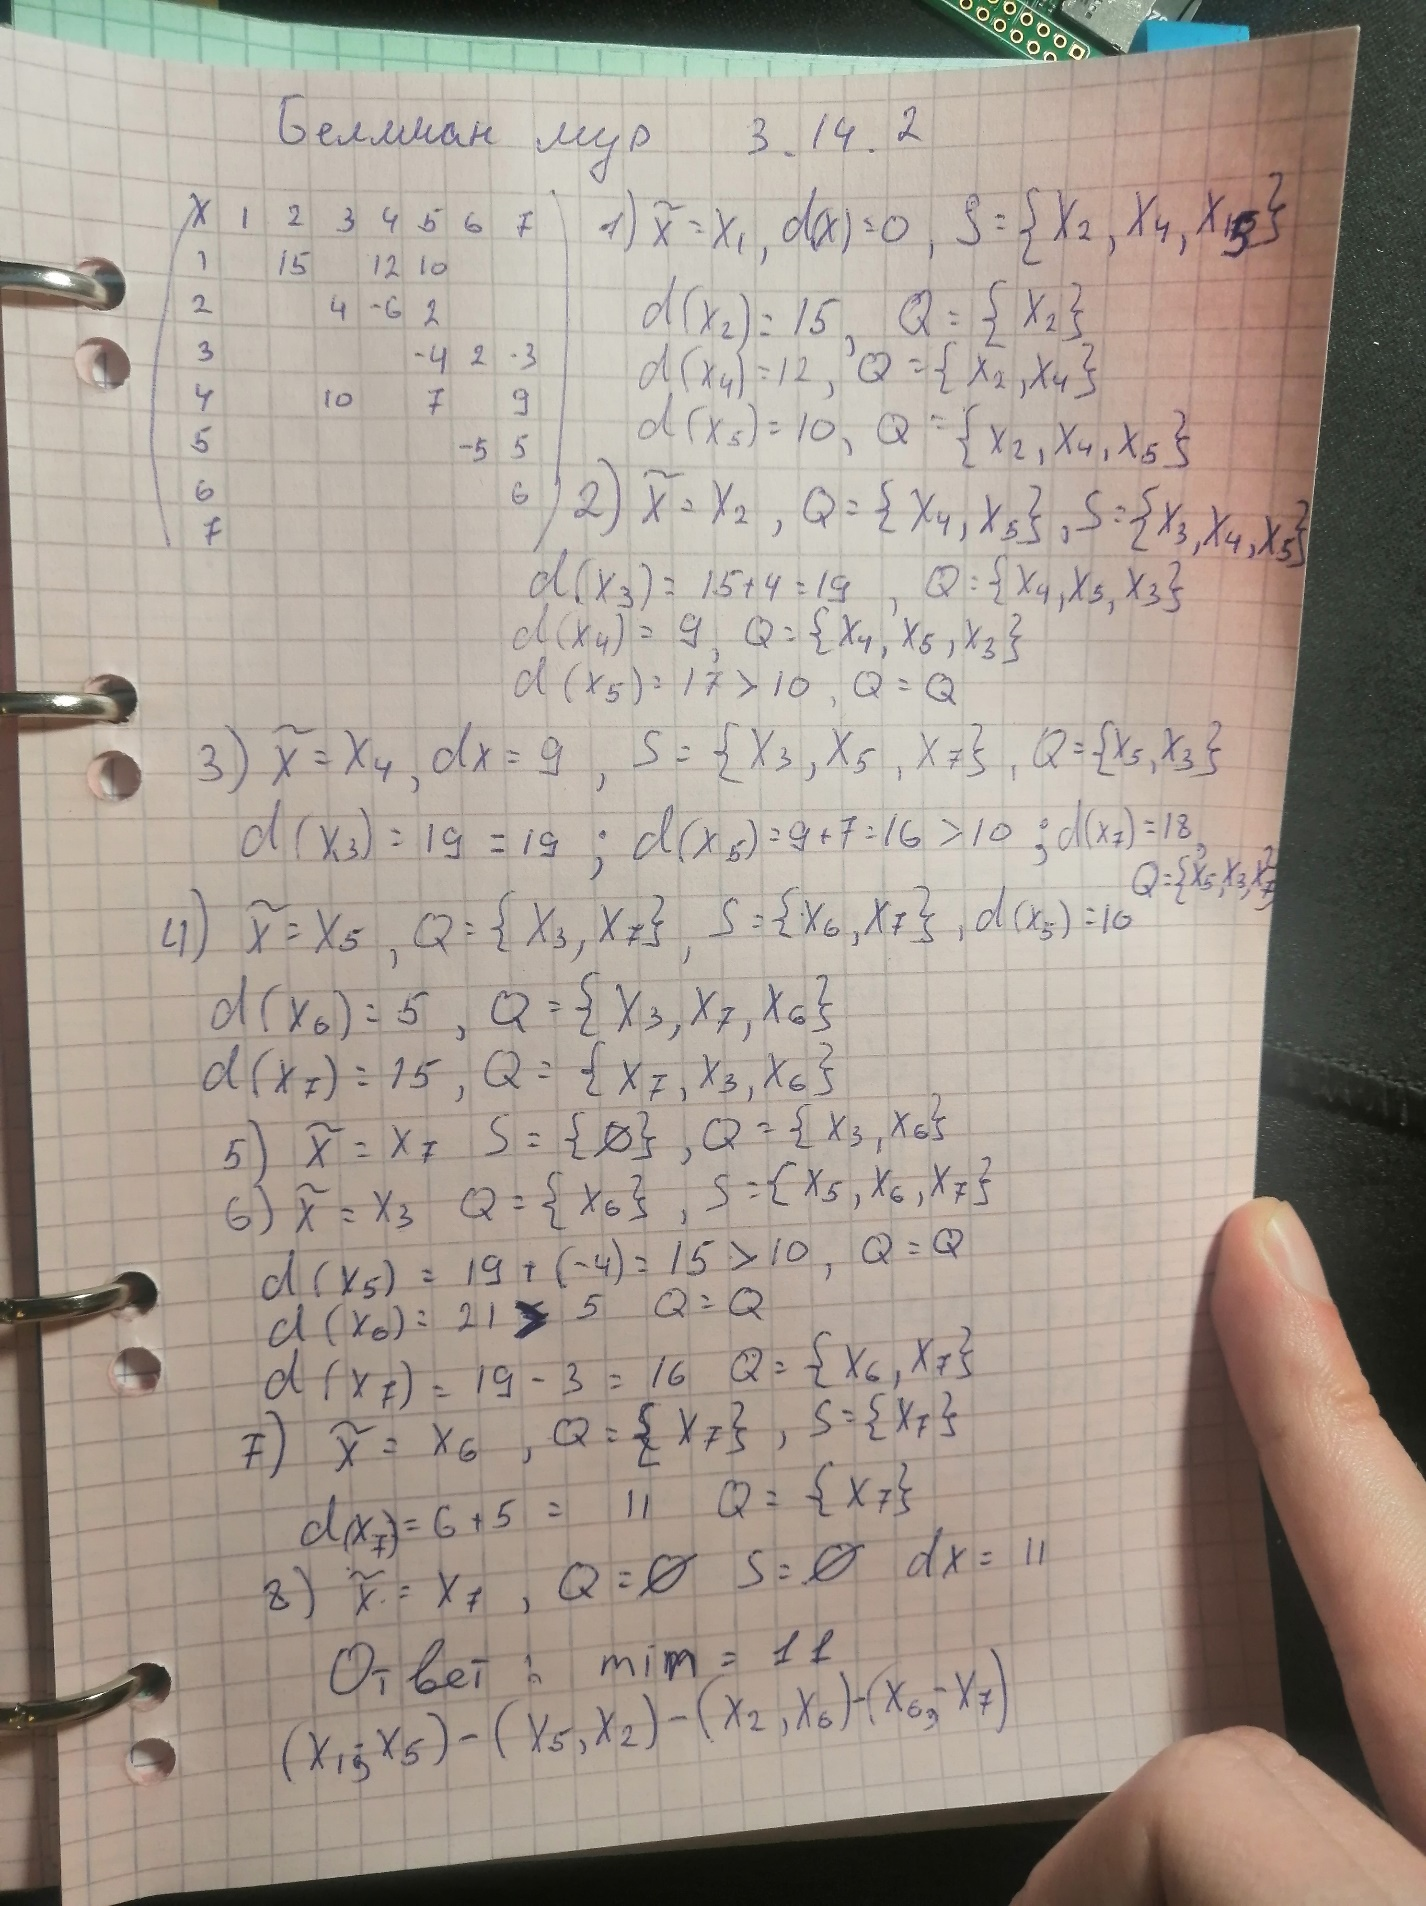 Беллман мур 3.14.2
X 1 2 3 4 5 6 7
1 15 12 10
2 4 -6 2
3 -4 2 -3
4 10 7 9
5 -5 5
6 6
7
1) x̃ = X₁, d(x)=0, S={X₂, X₄, X₅}
d(x₂)=15, Q={X₂}
d(x₄)=12, Q={X₂, X₄}
d(x₅)=10, Q={X₂, X₄, X₅}
2) x̃ = X₂, Q={X₄, X₅}, S={X₃, X₄, X₅}
d(x₃)=15+4=19, Q={X₄, X₅, X₃}
d(x₄)=9, Q={X₄, X₅, X₃}
d(x₅)=17>10, Q=Q
3) x̃=X₄, dx=9, S={X₃, X₅, X₇}, Q={X₅, X₃}
d(x₃)=19=19; d(x₅)=9+7=16>10; d(x₇)=18,
Q={X₅, X₃, X₇}
4) x̃=X₅, Q={X₃, X₇}, S={X₆, X₇}, d(x₅)=10
d(x₆)=5, Q={X₃, X₇, X₆}
d(x₇)=15, Q={X₇, X₃, X₆}
5) x̃=X₇ S={∅}, Q={X₃, X₆}
6) x̃=X₃ Q={X₆}, S={X₅, X₆, X₇}
d(x₅)=19+(-4)=15>10, Q=Q
d(x₆)=21>5 Q=Q
d(x₇)=19-3=16 Q={X₆, X₇}
7) x̃=X₆, Q={X₇}, S={X₇}
d(x₇)=6+5=11 Q={X₇}
8) x̃=X₇, Q=∅ S=∅ dx=11
Ответ: min=11
(X₁; X₅)-(X₅, X₂)-(X₂, X₆)-(X₆, X₇)